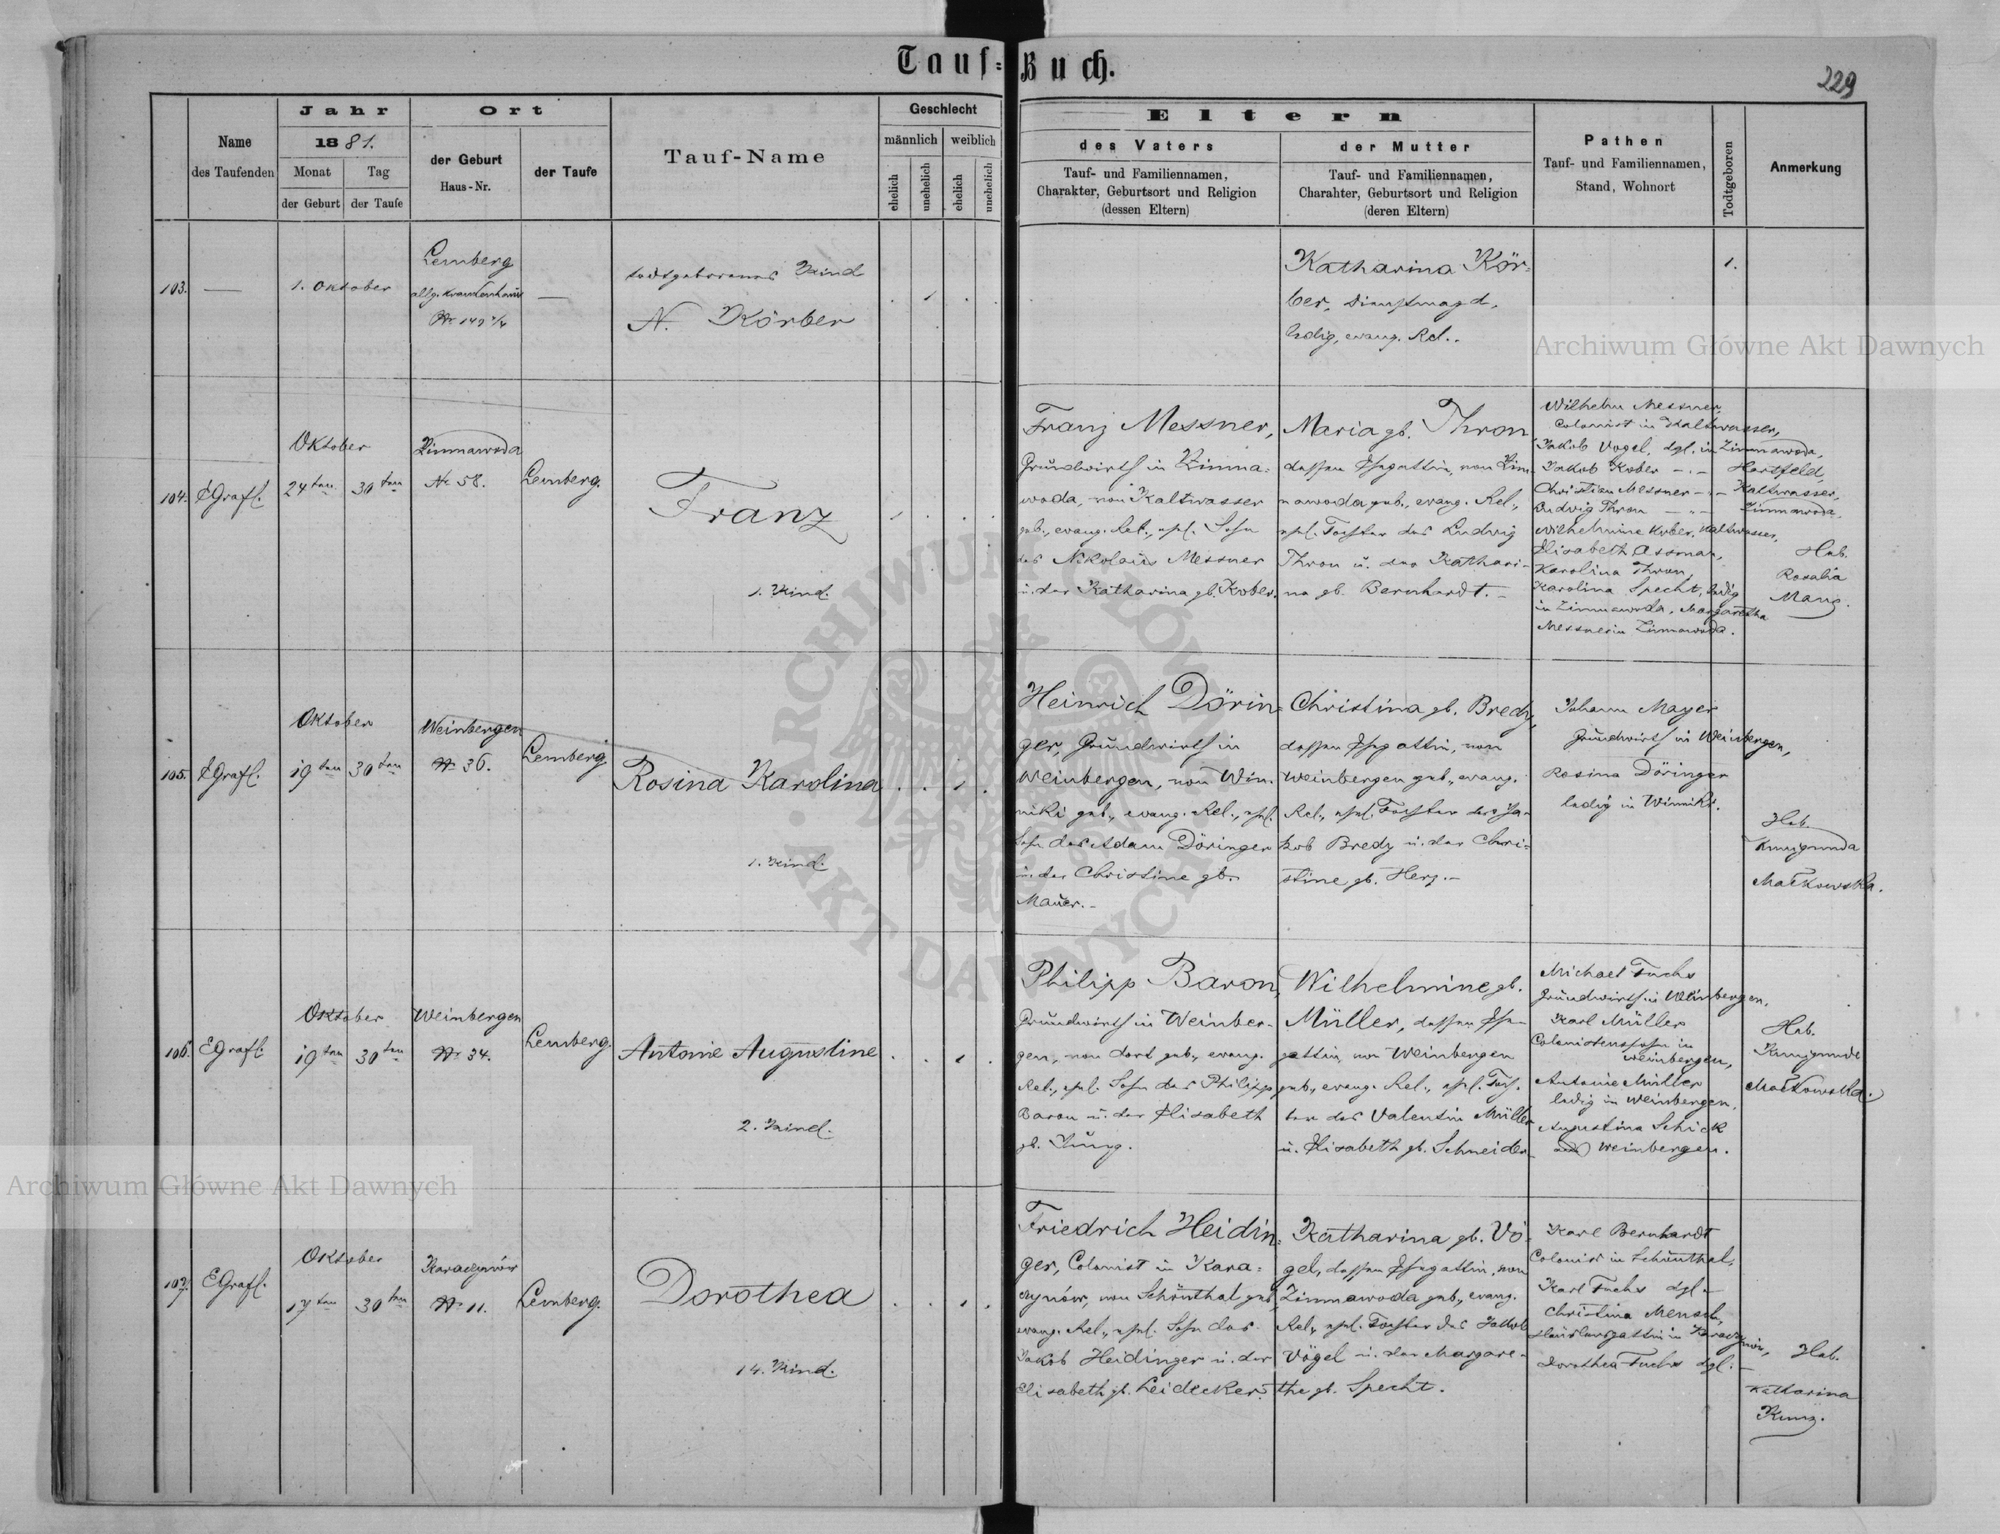 Tauf-Buch.
229
Name
des Taufenden
Jahr
1881.
Monat
der Geburt
Tag
der Taufe
Ort
der Geburt
Haus-Nr.
der Taufe
Tauf-Name
Geschlecht
männlich
weiblich
ehelich
unehelich
ehelich
unehelich
Eltern
des Vaters
Tauf- und Familiennamen,
Charakter, Geburtsort und Religion
(dessen Eltern)
der Mutter
Tauf- und Familiennamen,
Charahter, Geburtsort und Religion
(deren Eltern)
Pathen
Tauf- und Familiennamen,
Stand, Wohnort
Todtgeboren
Anmerkung
103.
1. Oktober
Lemberg
allg. Krankenhaus
todtgeborenes Kind
N. Körber
Katharina Kör-
ber, Dienstmagd,
ledig, evang. Rel..
1.
104.
EGrafl.
Oktober
24ten 30ten
Zimnawoda
Nr 58.
Lemberg.
Franz
1. Kind.
Franz Messner,
Grundwirth in Zimna-
woda, von Kaltwasser
geb., evang. Rel., ehel. Sohn
des Nikolaus Messner
u. der Katharina gb. Kober.
Maria gb. Thron
dessen Ehegattin, von Zim-
nawoda geb., evang. Rel.,
ehel. Tochter des Ludwig
Thron u. der Kathari-
na gb. Bernhardt.
Wilhelm Messner,
Colonist in Kaltwasser,
Jakob Vogel, dgl. in Zimnawoda,
Jakob Kober -.- Hartfeld,
Christian Messner -.- Kaltwasser,
Ludwig Thron -.- Zimnawoda,
Wilhelmine Kober, Kaltwasser,
Elisabeth Assman,
Karolina Thron,
Karolina Specht, ledig
in Zimnawoda, Margaretha
Messner in Zimnawoda.
Heb.
Rosalia
Mang.
105.
EGrafl.
Oktober
19ten 30ten
Weinbergen
Nr 36.
Lemberg.
Rosina Karolina
1. Kind.
Heinrich Dörin-
ger, Grundwirth in
Weinbergen, von Win-
niki geb., evang. Rel., ehel.
Sohn des Adam Döringer
u. der Christine gb.
Mauer.-
Christina gb. Bredy,
dessen Ehegattin, von
Weinbergen geb., evang.
Rel., ehel. Tochter des Ja-
kob Bredy u. der Chri-
stine gb. Herz.-
Johann Mayer
Grundwirth in Weinbergen,
Rosina Döringer
ledig in Winniki.
Heb.
Kunigunda
Małkowska.
106.
EGrafl.
Oktober
19ten 30ten
Weinbergen
Nr 34.
Lemberg.
Antonie Augustine
2. Kind.
Philipp Baron,
Grundwirth in Weinber-
gen, von dort geb., evang.
Rel., ehel. Sohn des Philipp
Baron u. der Elisabeth
gb. Jung.
Wilhelmine gb.
Müller, dessen Ehe-
gattin, von Weinbergen
geb., evang. Rel., ehel. Toch-
ter des Valentin Müller
u. Elisabeth gb. Schneider
Michael Fuchs
Grundwirth in Weinbergen,
Karl Müller
Colonistenssohn in
Weinbergen,
Antonie Müller
ledig in Weinbergen,
Augustina Schick
Weinbergen.
Heb.
Kunigunde
Małkowska.
107.
EGrafl.
Oktober
17ten 30ten
Karaczynów
Nr 11.
Lemberg.
Dorothea
14. Kind.
Friedrich Heidin-
ger, Colonist in Kara-
czynów, von Schönthal geb.,
evang. Rel., ehel. Sohn des
Jakob Heidinger u. der
Elisabeth gb. Leidecker.
Katharina gb. Vö-
gel, dessen Ehegattin, von
Zimnawoda geb., evang.
Rel., ehel. Tochter des Jakob
Vögel u. der Margare-
the gb. Specht.
Karl Bernhardt
Colonist in Schönthal,
Karl Fuchs dgl.-
Christina Mensch,
in Karaczynów,
Dorothea Fuchs dgl.-
Heb.
Katharina
Kunz.
Archiwum Główne Akt Dawnych
Archiwum Główne Akt Dawnych
ARCHIWUM GŁÓWNE AKT DAWNYCH